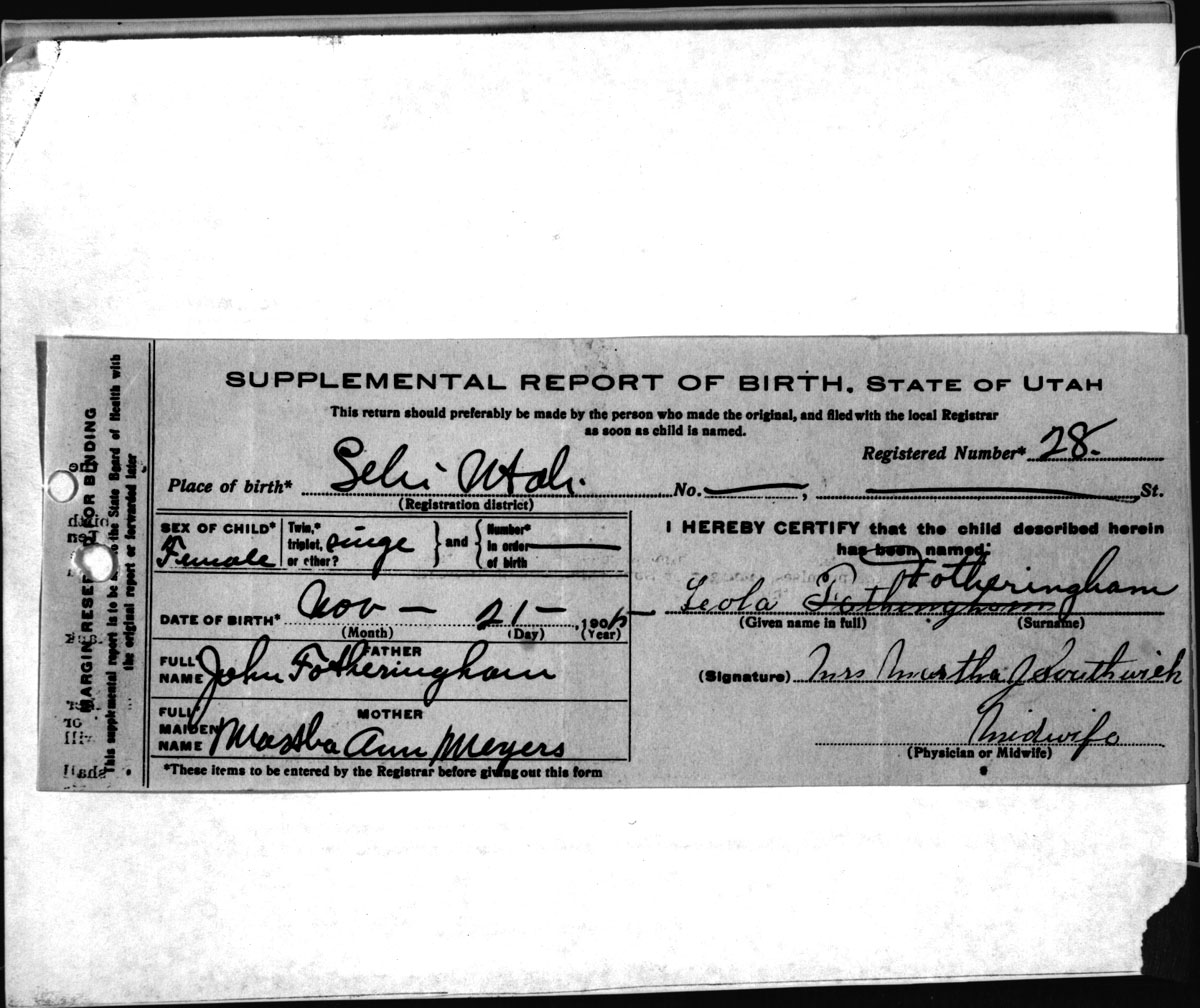 SUPPLEMENTAL REPORT OF BIRTH. STATE OF UTAH
This return should preferably be made by the person who made the original, and filed with the local Registrar
as soon as child is named.
Registered Number* 28.
Place of birth* Lehi Utah. No. , St.
(Registration district)
SEX OF CHILD* Female
Twin,* triplet, or other? singe } and { Number* in order of birth
DATE OF BIRTH* Nov — 21 — , 190
(Month) (Day) (Year)
FATHER
FULL NAME John Fotheringham
MOTHER
FULL MAIDEN NAME Martha Ann Meyers
*These items to be entered by the Registrar before giving out this form
I HEREBY CERTIFY that the child described herein
has been named:
Fotheringham
Leola Fotheringham
(Given name in full) (Surname)
(Signature) Mrs Martha J Southwick
Midwife
(Physician or Midwife)
MARGIN RESER OR BINDING
This supplemental report is to be the State Board of Health with
the original report or forwarded later